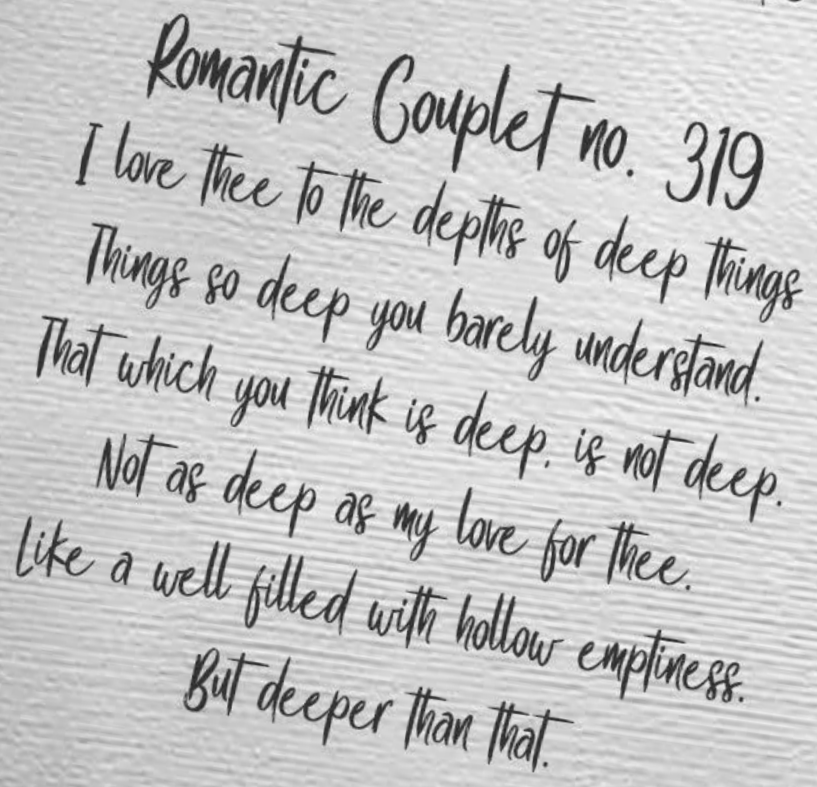 Romantic Couplet no. 319
I love thee to the depths of deep things
Things so deep you barely understand.
That which you think is deep, is not deep.
Not as deep as my love for thee.
Like a well filled with hollow emptiness.
But deeper than that.